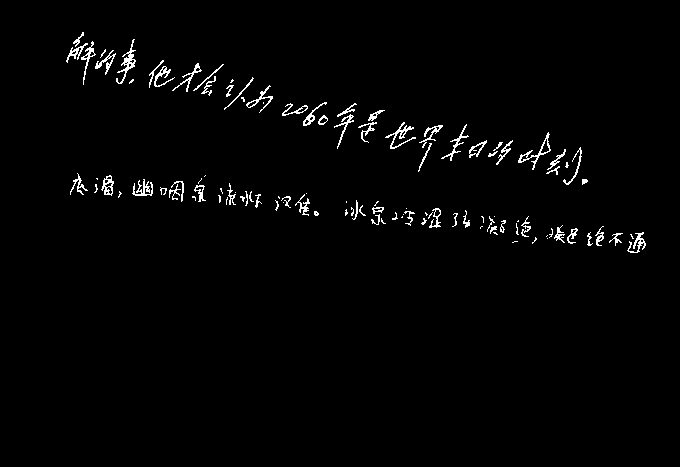 解的事,他才会认为2060年是世界末日的时刻.
底滑,幽咽泉流水下滩。冰泉冷涩弦凝绝,凝绝不通